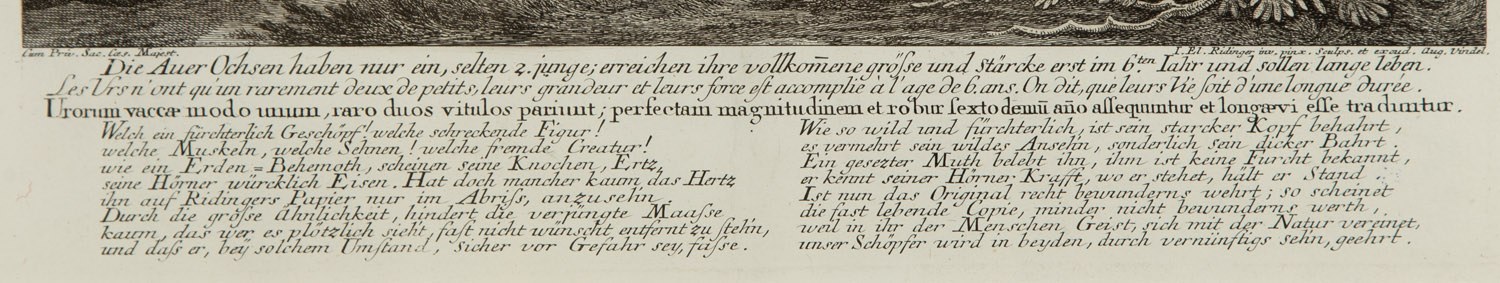 Cum Priv. Sac. Cæs. Majest.
I. El. Ridinger inv. pinx. Sculps. et excud. Aug. Vindel.
Die Auer Ochsen haben nur ein, selten 2. junge; erreichen ihre vollkom̅ene gröſse und Stärcke erst im 6.ten Iahr und sollen lange leben.
Les Urs n'ont qu'un rarement deux de petits, leurs grandeur et leurs force eſt accomplie à l'age de 6. ans. On dit, que leurs Vie ſoit d'une longue durée.
Urorum vaccæ modo unum, raro duos vitulos pariunt; perfectam magnitudinem et robur ſexto demū año aſſequuntur et longævi eſſe traduntur.
Welch ein fürchterlich Geschöpf! welche schreckende Figur!
welche Muskeln, welche Sehnen! welche fremde Creatur!
wie ein Erden=Behemoth, scheinen seine Knochen, Ertz,
seine Hörner würcklich Eisen. Hat doch mancher kaum das Hertz
ihn auf Ridingers Papier nur im Abriſs, anzusehn.
Durch die gröſse Ähnlichkeit, hindert die verjüngte Maaſse
kaum, das wer es plötzlich sieht, faſt nicht wünscht entfernt zu stehn,
und daſs er, bey solchem Umstand, sicher vor Gefahr sey, faſse.
Wie so wild und fürchterlich, ist sein starcker Kopf behahrt,
es vermehrt sein wildes Ansehn, sonderlich sein dicker Bahrt.
Ein gesezter Muth belebt ihn, ihm ist keine Furcht bekannt,
er kennt seiner Hörner Krafft, wo er stehet, hält er Stand.
Ist nun das Original recht bewunderns wehrt; so scheinet
die faſt lebende Copie, minder nicht bewunderns werth,
weil in ihr der Menschen Geist, sich mit der Natur vereinet,
unser Schöpfer wird in beyden, durch vernünftigs sehn, geehrt.